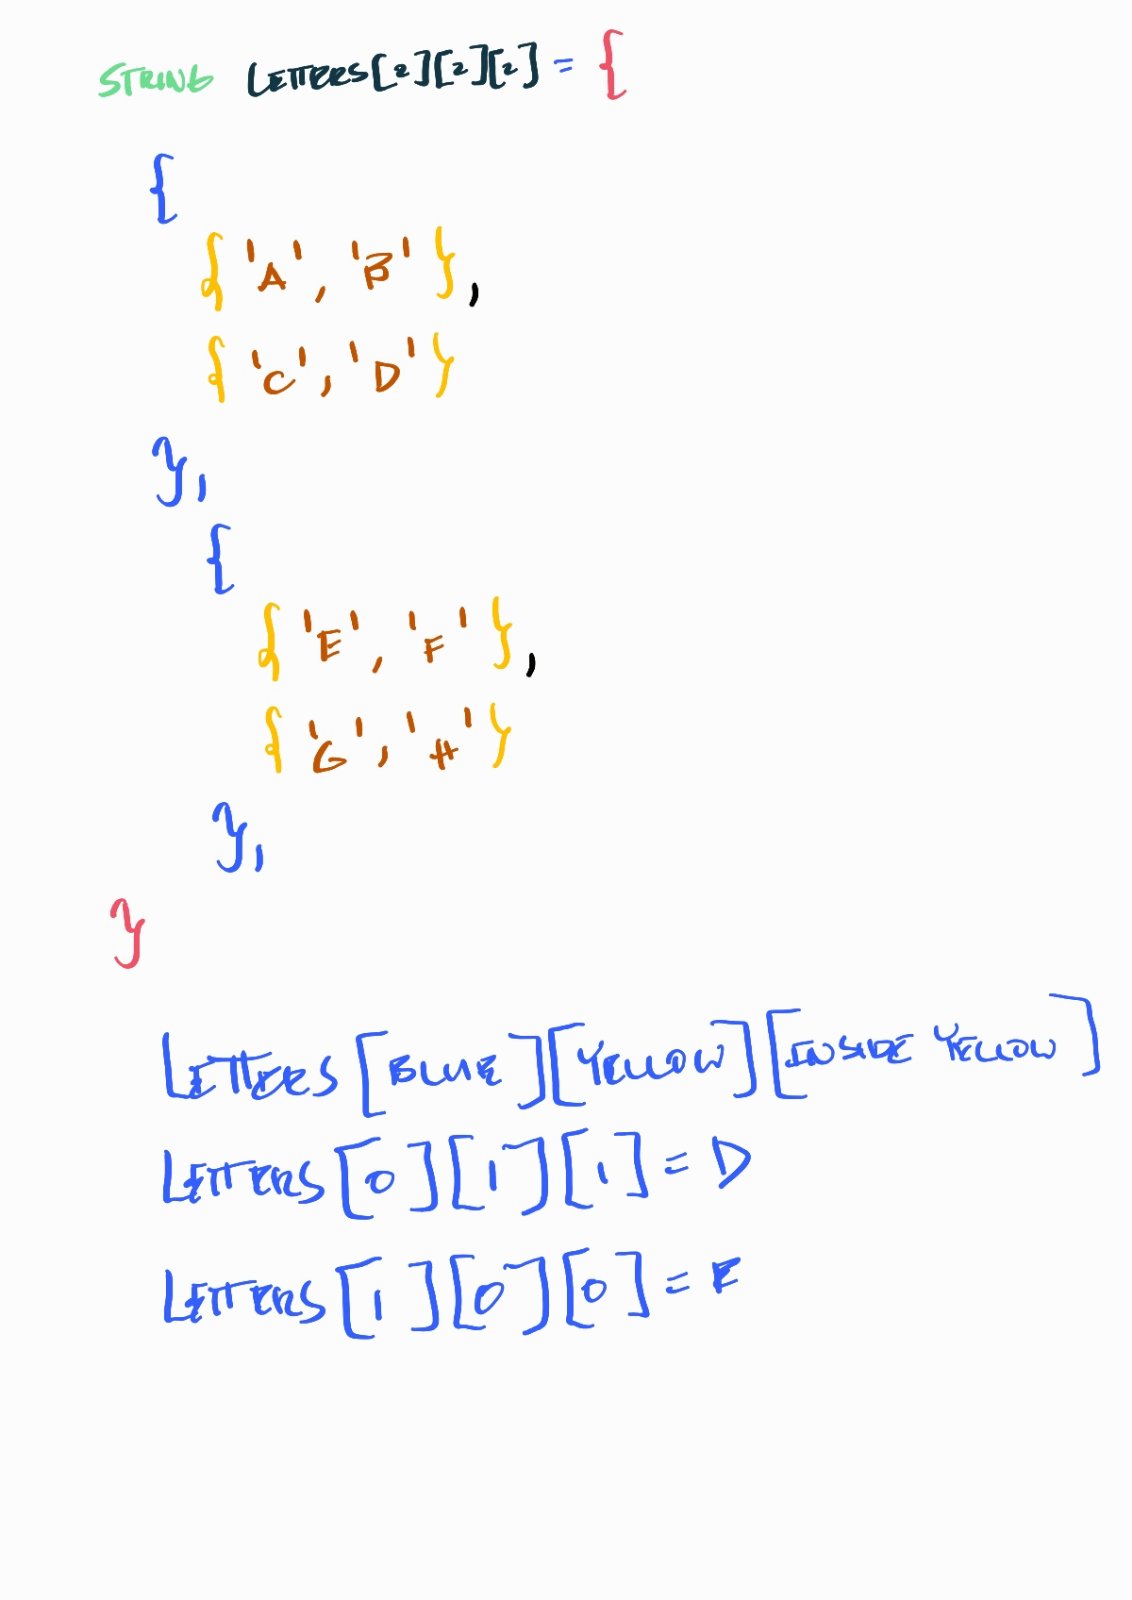 STRING LETTERS[2][2][2] = {
{
{ 'A', 'B' },
{ 'C', 'D' }
},
{
{ 'E', 'F' },
{ 'G', 'H' }
},
}
LETTERS [BLUE][YELLOW][INSIDE YELLOW]
LETTERS [0][1][1] = D
LETTERS [1][0][0] = E